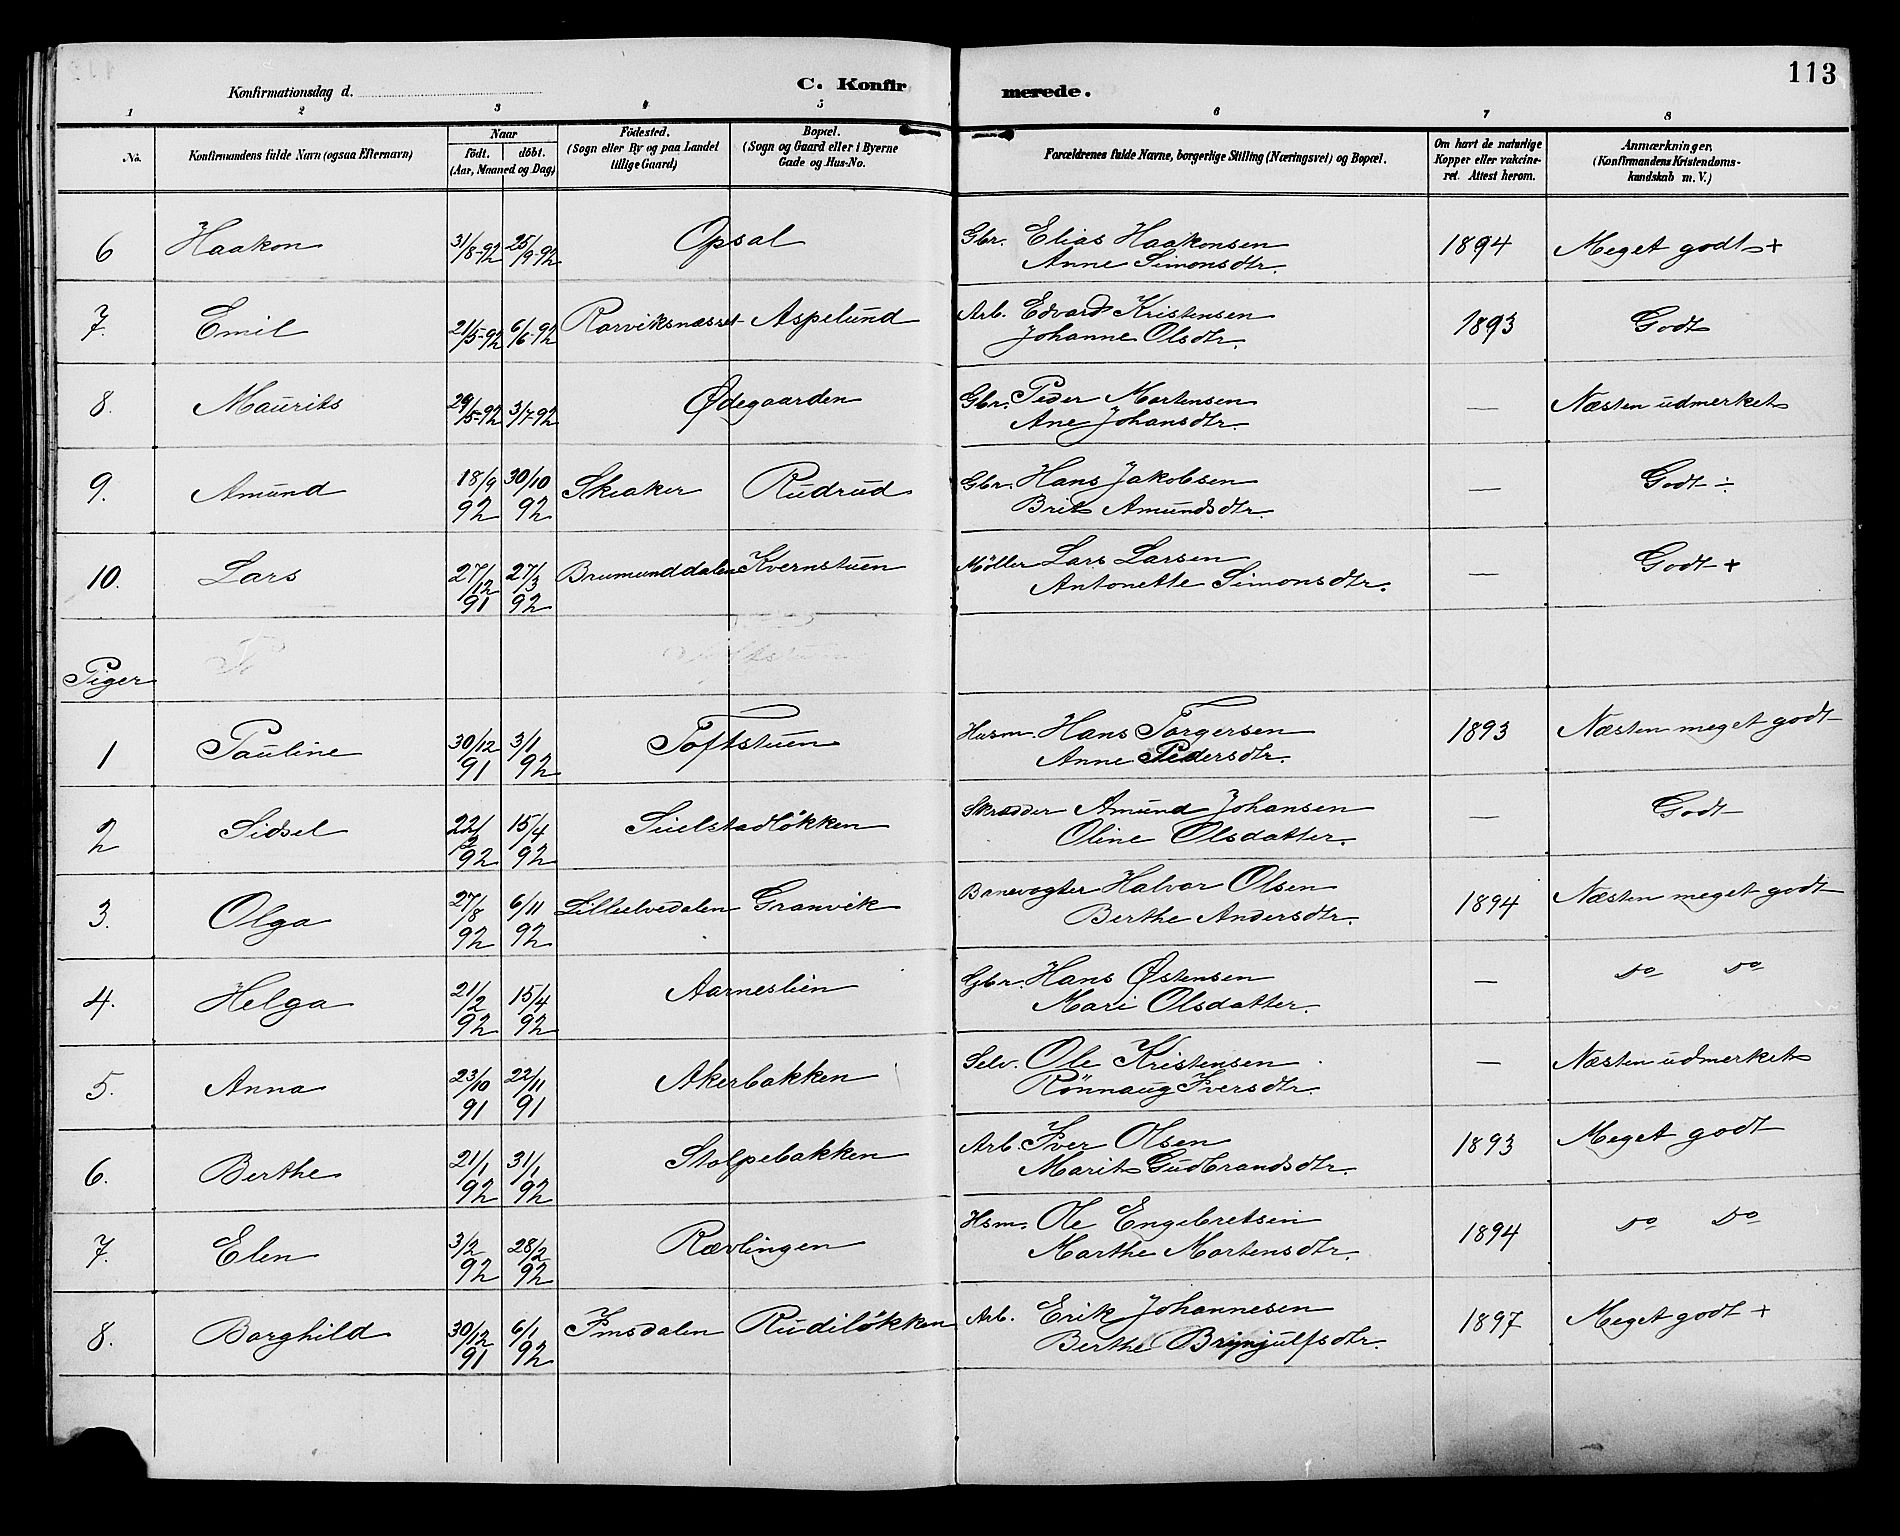 113
Konfirmationsdag d.
C. Konfirmerede.
1 2 3 4 5 6 7 8
No. Konfirmandens fulde Navn (ogsaa Efternavn) Naar födt. döbt. (Aar, Maaned og Dag) Födested. (Sogn eller By og paa Landet tillige Gaard) Bopæl. (Sogn og Gaard eller i Byerne Gade og Hus-No. Forældrenes fulde Navne, borgerlige Stilling (Næringsvei) og Bopæl. Om havt de naturlige Kopper eller vakcineret. Attest herom. Anmærkninger, (Konfirmandens Kristendomskundskab m. V.)
6 Haakon 31/8-92 25/9-92 Opsal Gbr. Elias Haakonsen 1894 Meget godt +
Anne Simonsdtr.
7. Emil 21/5-92 6/6-92 Rørviksnæsset Aspelund Arb. Edvard Kristensen 1893 Godt
Johanne Olsdtr.
8. Maurits 29/5-92 3/7-92 Ødegaarden Gbr. Peder Mortensen — Næsten udmerket
Ane Johansdtr.
9. Amund 18/9 92 30/10 92 Skiaker Rudrud Gbr. Hans Jakobsen — Godt ÷
Brit Amundsdtr.
10. Lars 27/12 91 27/3 92 Brumunddalen Kvernstuen Møller Lars Larsen — Godt +
Antonette Simonsdtr.
Piger
1 Pauline 30/12 91 3/1 92 Toftstuen Husm. Hans Torgersen 1893 Næsten meget godt
Anne Pedersdtr.
2 Sidsel 22/2 92 15/4 92 Suelstadløkken Skrædder Amund Johansen — Godt
Oline Olsdatter.
3. Olga 27/8 92 6/11 92 Lilleelvedalen Granvik Banevogter Halvor Olsen 1894 Næsten meget godt
Berthe Andersdtr.
4. Helga 21/2 92 15/4 92 Aarneslien Gbr. Hans Østensen — do do
Mari Olsdatter.
5. Anna 23/10 91 22/11 91 Akerbakken Selv. Ole Kristensen — Næsten udmerket
Rönnaug Iversdtr.
6. Berthe 21/1 92 31/1 92 Stolpebakken Arb. Iver Olsen 1893 Meget godt
Marit Gudbrandsdtr.
7. Elen 3/2 92 28/2 92 Rævlingen Hsm. Ole Engebretsen 1894 do do
Marthe Mortensdtr.
8. Borghild 30/12 91 6/1 92 Imsdalen Rudiløkken Arb. Erik Johannesen 1897 Meget godt +
Berthe Brynjulfsdtr.